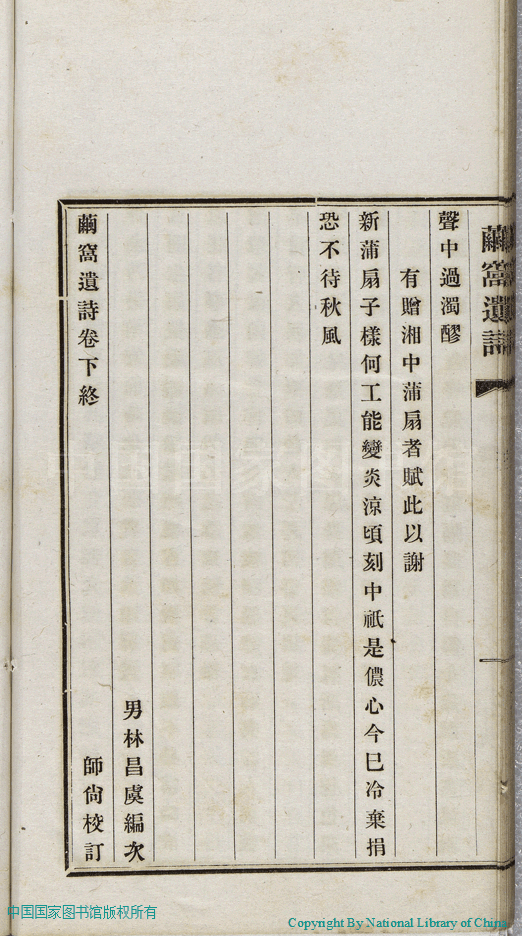 繭窩遺詩
聲中過濁醪
有贈湘中蒲扇者賦此以謝
新蒲扇子樣何工能變炎涼頃刻中祇是儂心今巳冷棄捐
恐不待秋風
男林昌虞編次
繭窩遺詩卷下終
師尙校訂
中国国家图书馆版权所有
Copyright By National Library of China